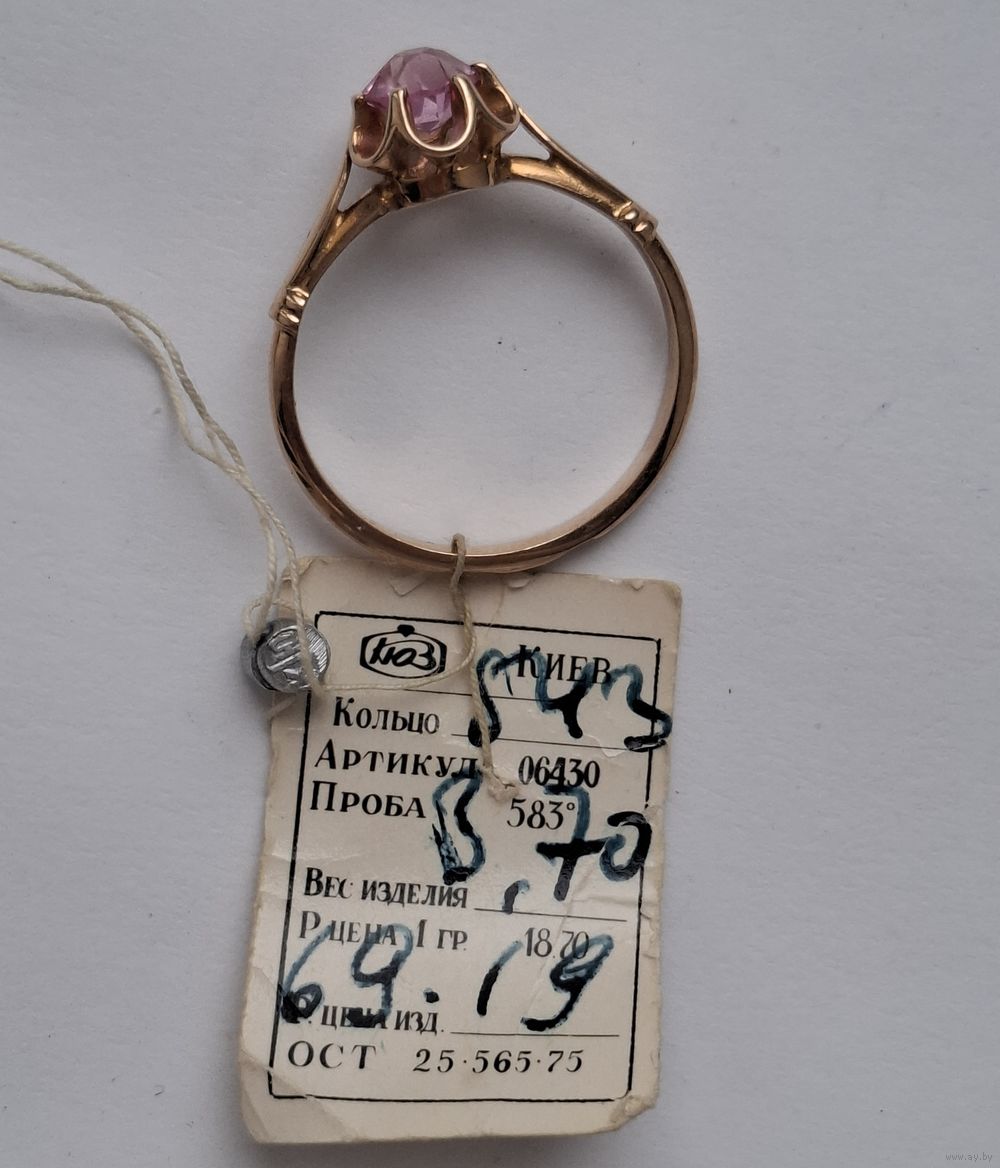 КЮЗ КИЕВ
543
КОЛЬЦО
АРТИКУЛ 06430
ПРОБА 583°
3,70
ВЕС ИЗДЕЛИЯ
Р. ЦЕНА 1 ГР. 18.70
69.19
Р. ЦЕНА ИЗД.
ОСТ 25·565·75
www.ay.by